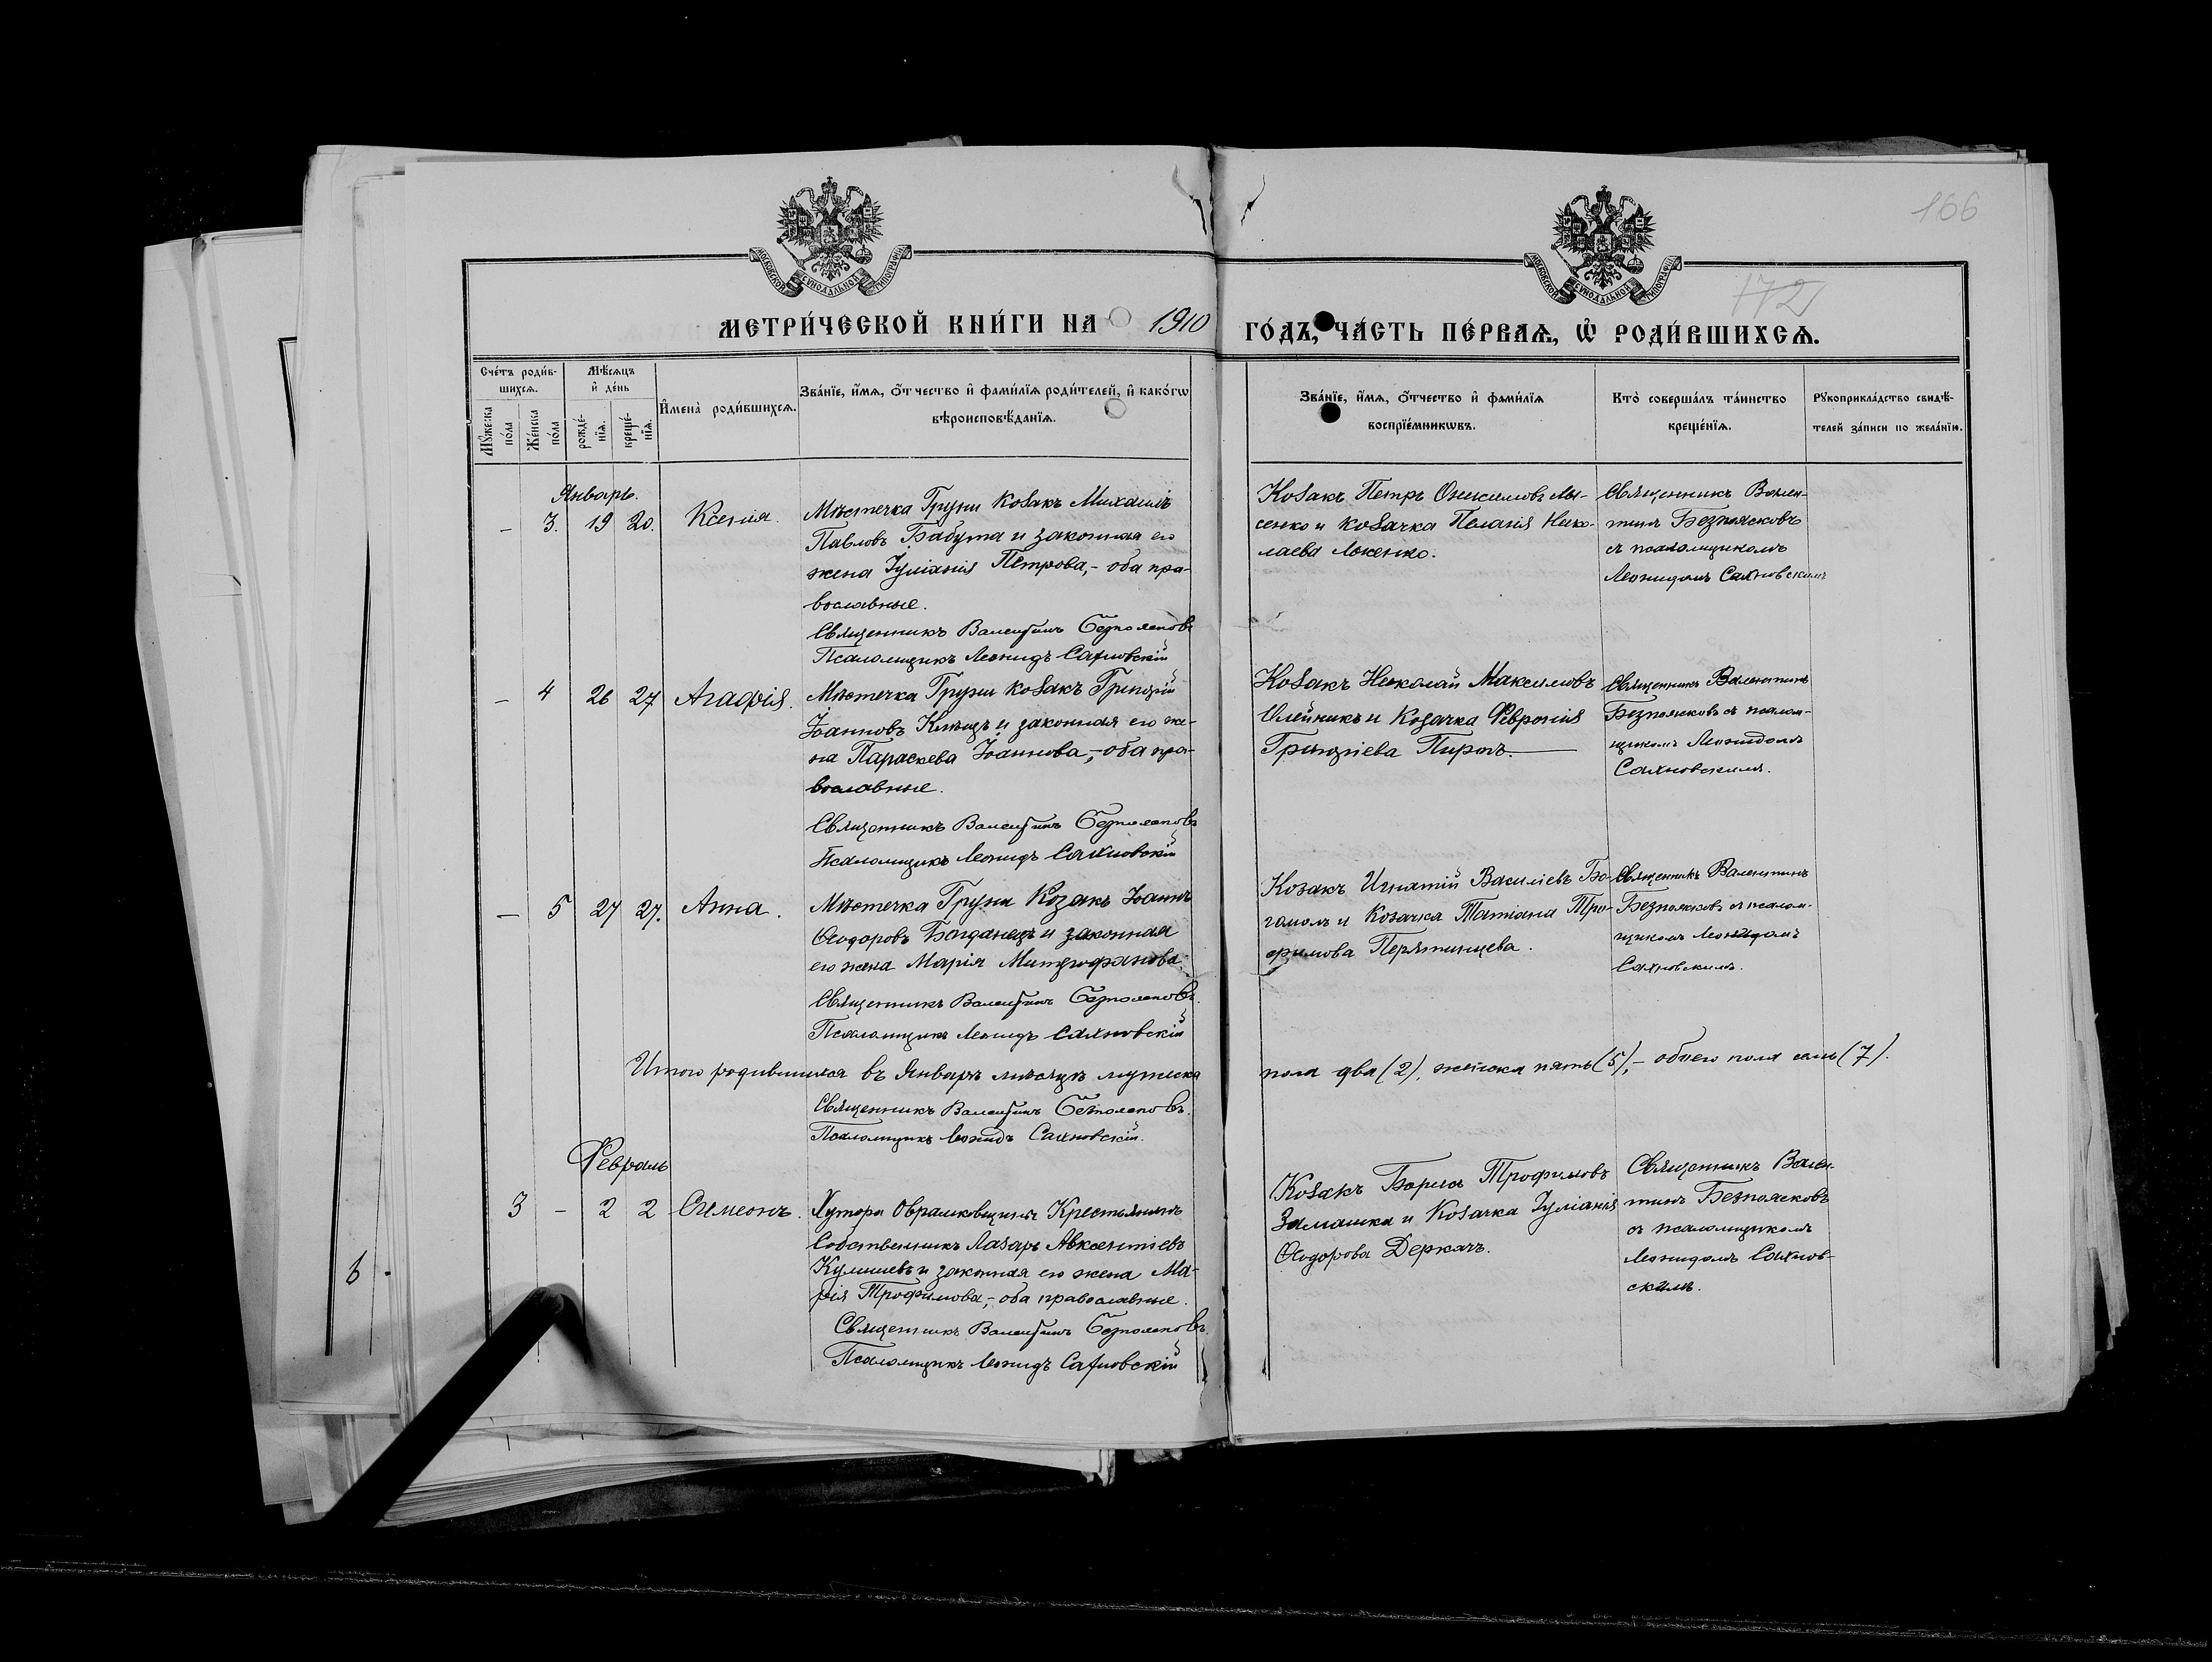 166
172
МОСКОВСКОЙ СѴНОДАЛЬНОЙ ТИПОГРАФІИ
МОСКОВСКОЙ СѴНОДАЛЬНОЙ ТИПОГРАФІИ
МЕТРИ́ЧЕСКОЙ КНИ́ГИ НА 1910 ГО́ДЪ, ЧА́СТЬ ПЕ́РВАѦ, Ѡ҆ РОДИ́ВШИХСѦ.
Сче́тъ роди́в-
шихсѧ.
Мꙋ́жеска по́ла
Же́нска по́ла
Мѣ́сѧцъ
и҆ де́нь
рожде́-
нїѧ.
креще́-
нїѧ.
И҆мена̀ роди́вшихсѧ.
Зва́нїе, и҆́мѧ, ѻ҆́тчество и҆ фами́лїѧ роди́телей, и҆ како́гѡ
вѣроисповѣ́данїѧ.
Зва́нїе, и҆́мѧ, ѻ҆́тчество и҆ фами́лїѧ
воспрїе́мникѡвъ.
Кто̀ соверша́лъ та́инство
креще́нїѧ.
Рꙋкоприкла́дство свидѣ́-
телей за́писи по жела́нїю.
Январь.
– 3. 19 20. Ксенія.
Мѣстечка Груни Козакъ Михаилъ
Павловъ Бабута и законная его
жена Іуліанія Петрова,– оба пра-
вославные.
Священникъ Валентинъ Безпоясковъ
Псаломщикъ Леонидъ Сахновскій
Козакъ Петръ Онисимовъ Лы-
сенко и козачка Пелагія Нико-
лаева
Священникъ Вален-
тинъ Безпоясковъ
съ псаломщикомъ
Леонидомъ Сахновскимъ
– 4 26 27 Агафія.
Мѣстечка Груни козакъ Григорій
Іоанновъ и законная его же-
на Параскева Іоаннова,– оба пра-
вославные.
Священникъ Валентинъ Безпоясковъ
Псаломщикъ Леонидъ Сахновскій
Козакъ Николай Максимовъ
Олейникъ и Козачка Февронія
Григоріева
Священникъ Валентинъ
Безпоясковъ съ псалом-
щикомъ Леонидомъ
Сахновскимъ.
– 5 27 27. Анна.
Мѣстечка Груни Козакъ Іоаннъ
Ѳеодоровъ Богданецъ и законная
его жена Марія Митрофанова.
Священникъ Валентинъ Безпоясковъ.
Псаломщикъ Леонидъ Сахновскій
Козакъ Игнатій Василіевъ Бо-
гомолъ и Козачка Татіана Тро-
фимова Перятинцева.
Священникъ Валентинъ
Безпоясковъ съ псалом-
щикомъ Леонидомъ
Сахновскимъ.
Итого родившихся въ Январѣ мѣсяцѣ мужска пола два (2), женска пять (5),– обоего пола семь (7).
Священникъ Валентинъ Безпоясковъ.
Псаломщикъ Леонидъ Сахновскій.
Февраль
3 – 2 2 Симеонъ.
Хутора Обрамковщины Крестьянинъ
Собственникъ Лазарь Авксентіевъ
Кулишевъ и законная его жена Ма-
рія Трофимова,– оба православные.
Священникъ Валентинъ Безпоясковъ.
Псаломщикъ Леонидъ Сахновскій
Козакъ Борисъ Трофимовъ
Замашка и Козачка Іуліанія
Ѳеодорова Деркачъ.
Священникъ Вален-
тинъ Безпоясковъ
съ псаломщикомъ
Леонидомъ Сахнов-
скимъ.